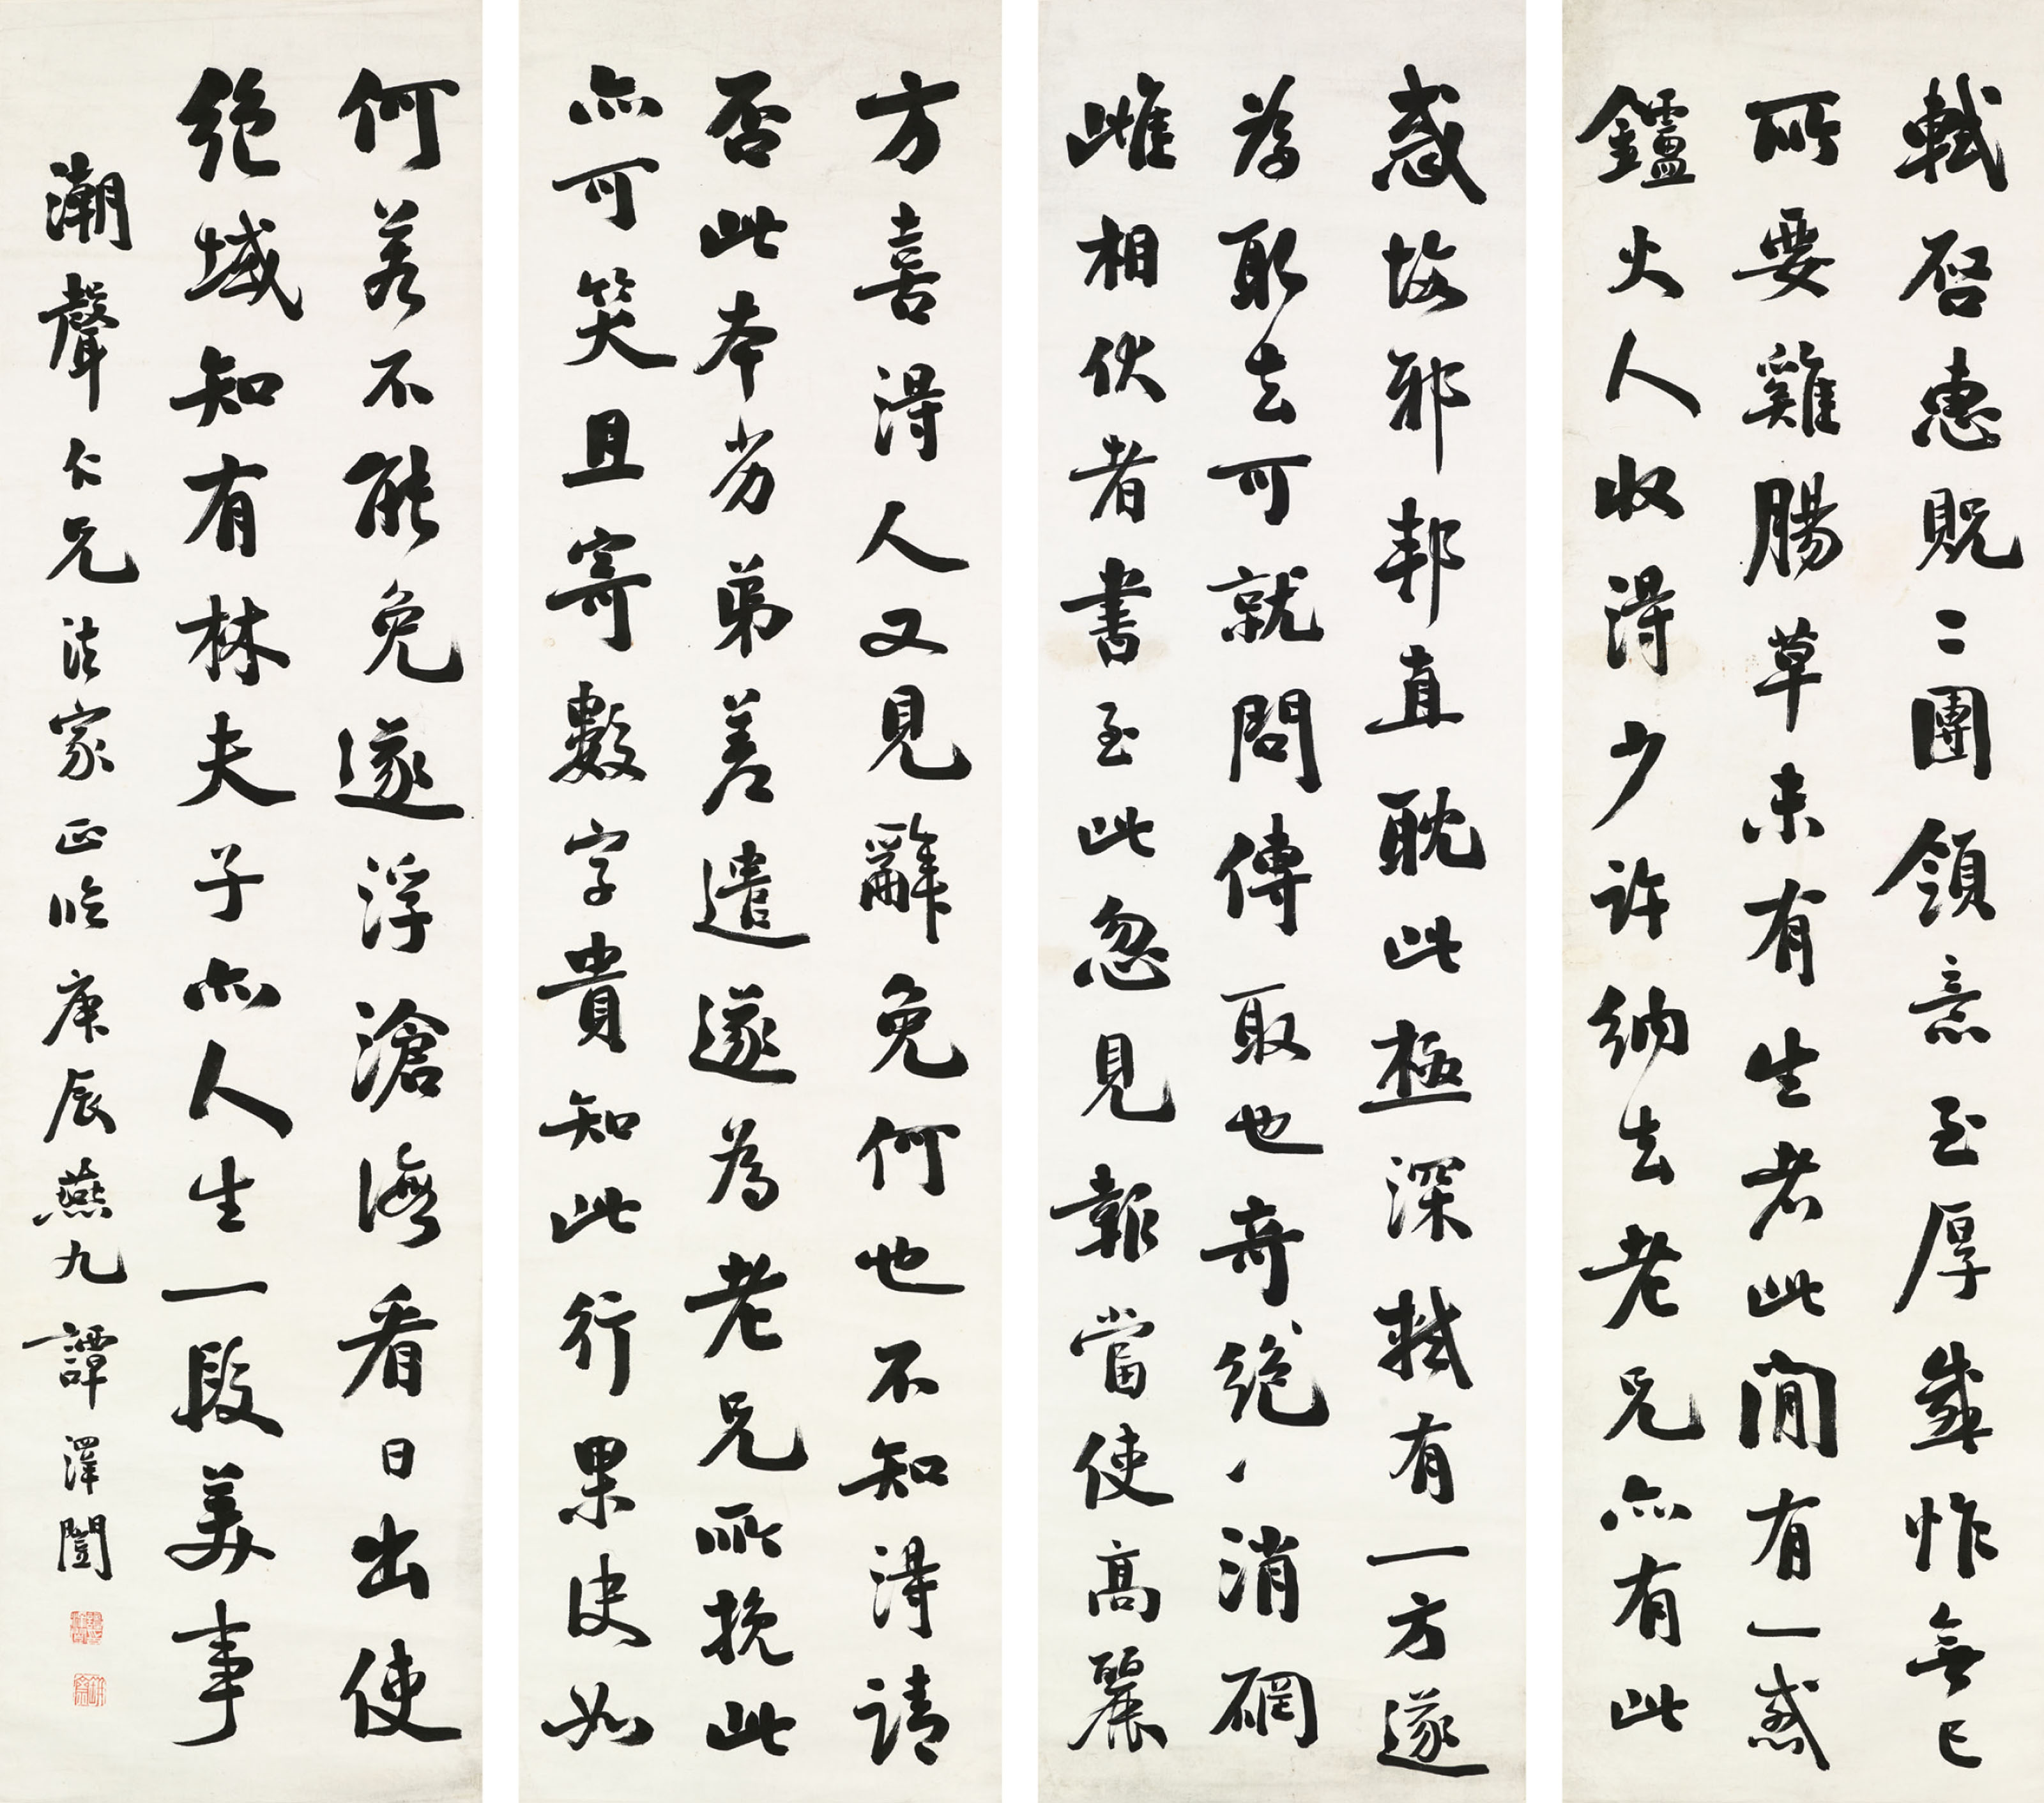 軾启惠貺二團領意至厚感怍無已
所要雞腸草未有生者此間有一惑
鑪火人收得少許納去老兄亦有此
惑悔邪邦直耽此極深軾有一方遂
為取去可就問傳取也奇絕丶消硐
雌相伏者書至此忽見報當使高麗
方喜得人又見辭免何也不知得請
否此本劣弟差遣遂為老兄所挽此
亦可笑且寄數字貴知此行果決如
何若不能免遂浮滄海看日出使
絕域知有林夫子亦人生一段美事
潮聲仁兄法家正臨庚辰燕九譚澤闓